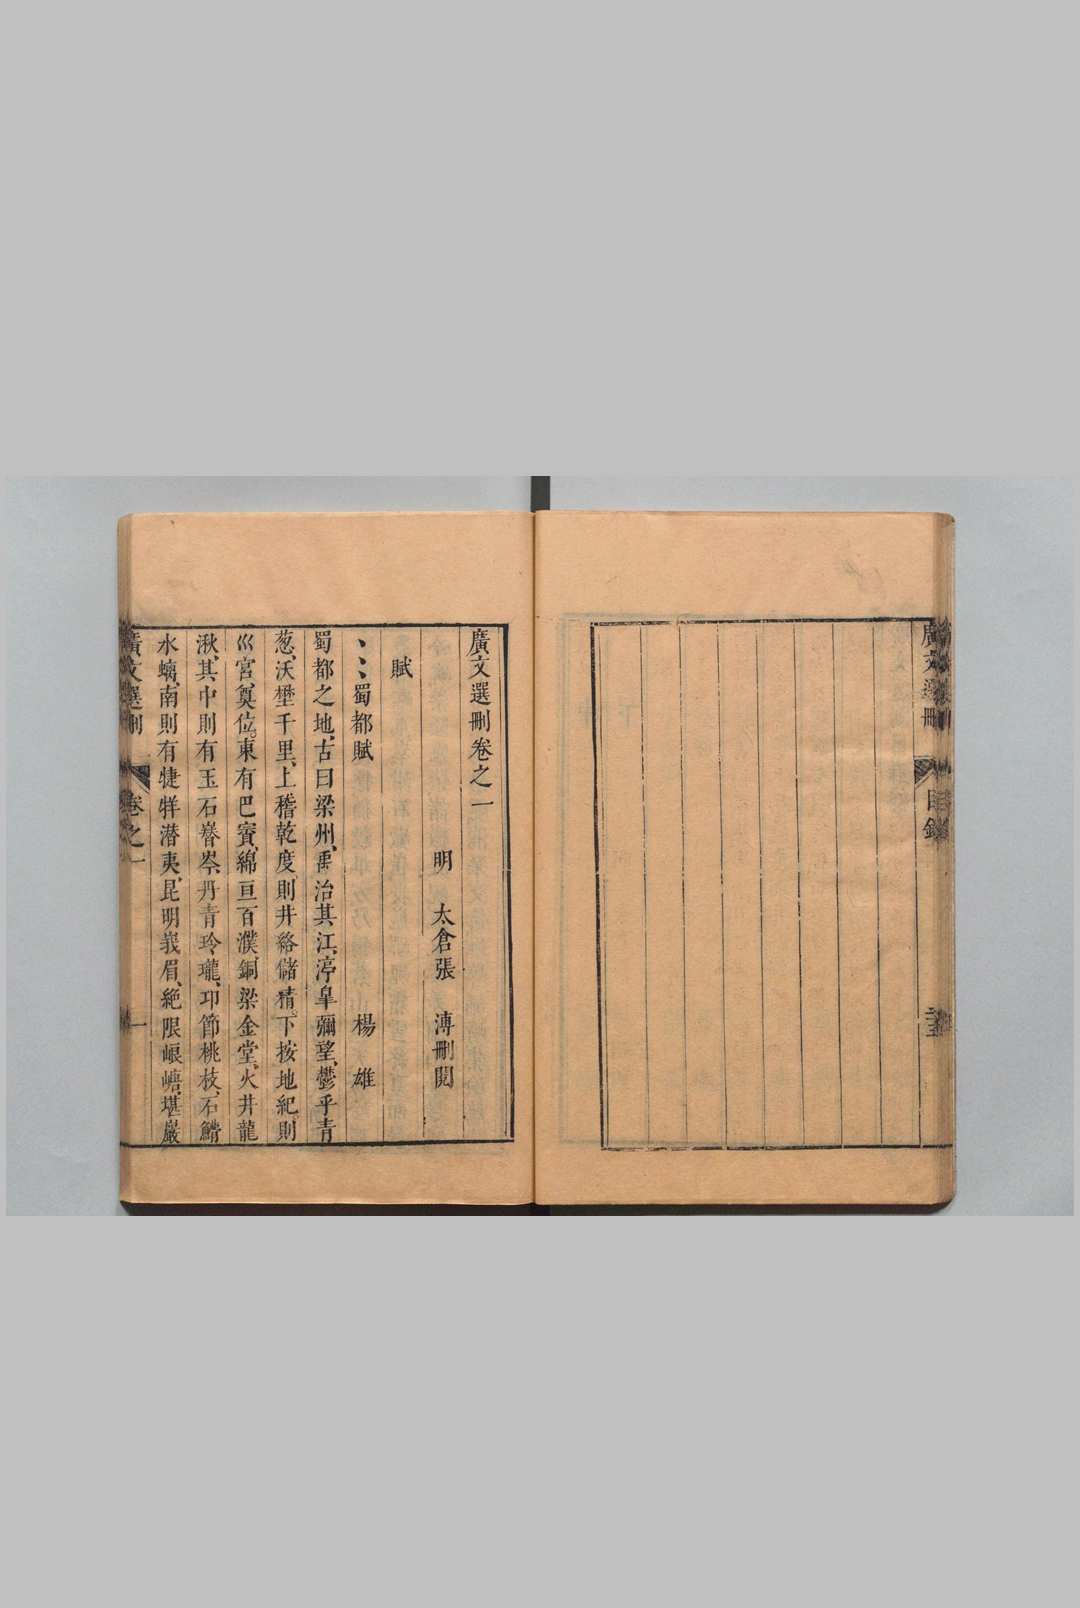 廣文選刪
目錄
廣文選刪卷之一
明 太倉張 溥刪閱
賦
蜀都賦 楊 雄
蜀都之地、古曰梁州、禹治其江、渟皐彌望、鬱乎青
葱、沃壄千里、上稽乾度、則井絡儲精。下按地紀。則
巛宮奠位。東有巴賨、綿亘百濮、銅梁金堂、火井龍
湫、其中則有玉石嶜岑、丹青玲瓏、邛節桃枝、石䱜
水螭、南則有犍牂潜夷、昆明峩眉、絶限㟴嵣、堪巖
廣文選刪
卷之一
一